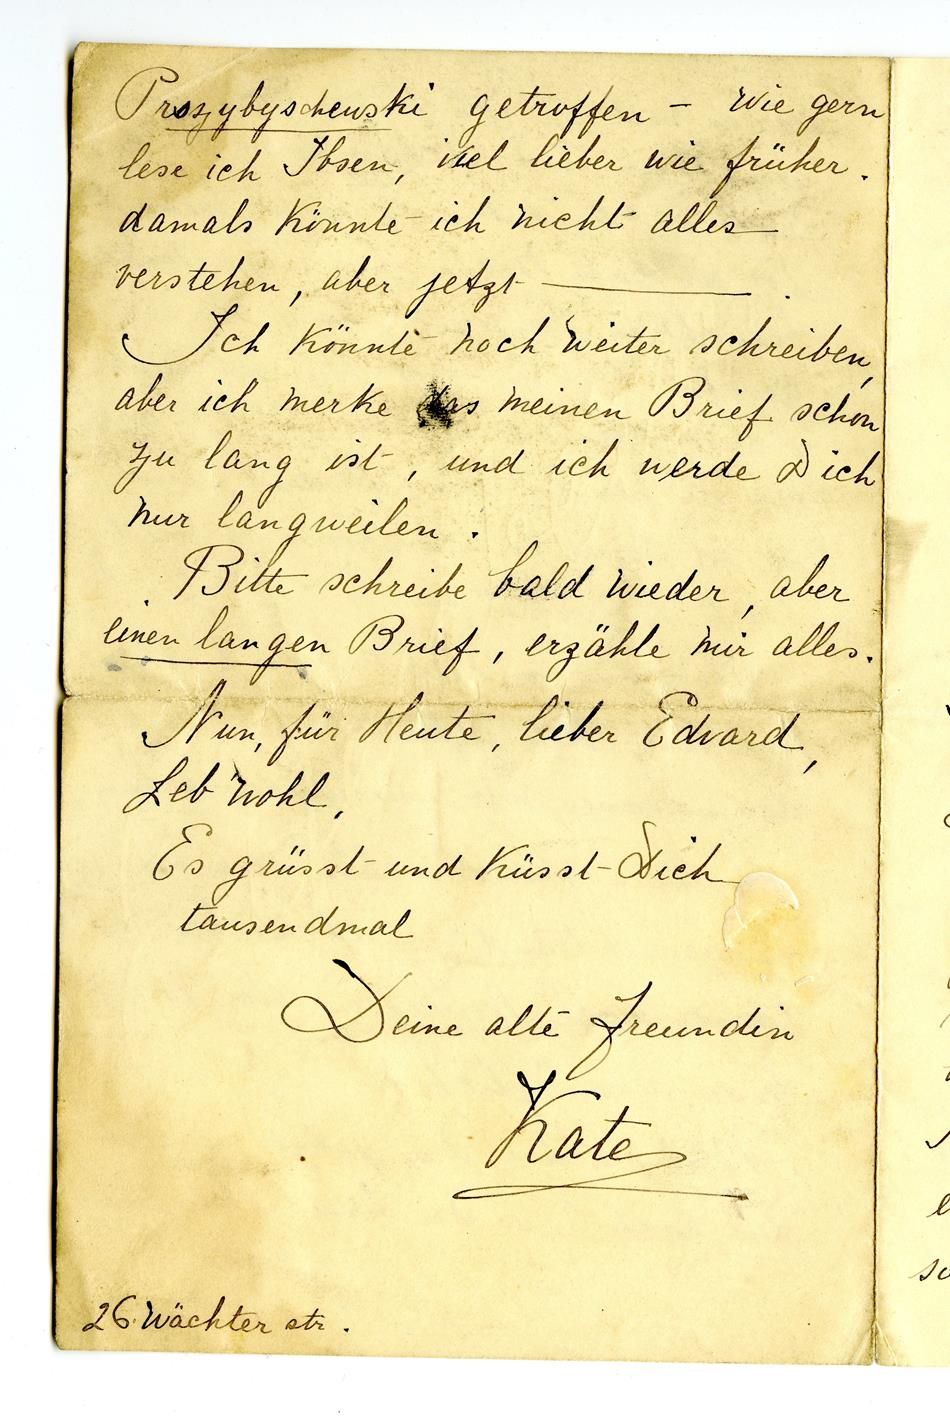 Proszybyschewski getroffen – wie gern
lese ich Ibsen, viel lieber wie früher.
damals könnte ich nicht alles
verstehen, aber jetzt ———.
Ich könnte noch weiter schreiben,
aber ich merke das meinen Brief schon
zu lang ist, und ich werde Dich
nur langweilen.
Bitte schreibe bald wieder, aber
einen langen Brief, erzähle mir alles.
Nun, für Heute, lieber Edvard,
Leb'wohl,
Es grüsst und küsst Dich
tausendmal
Deine alte Freundin
Kate
26. Wächter str.